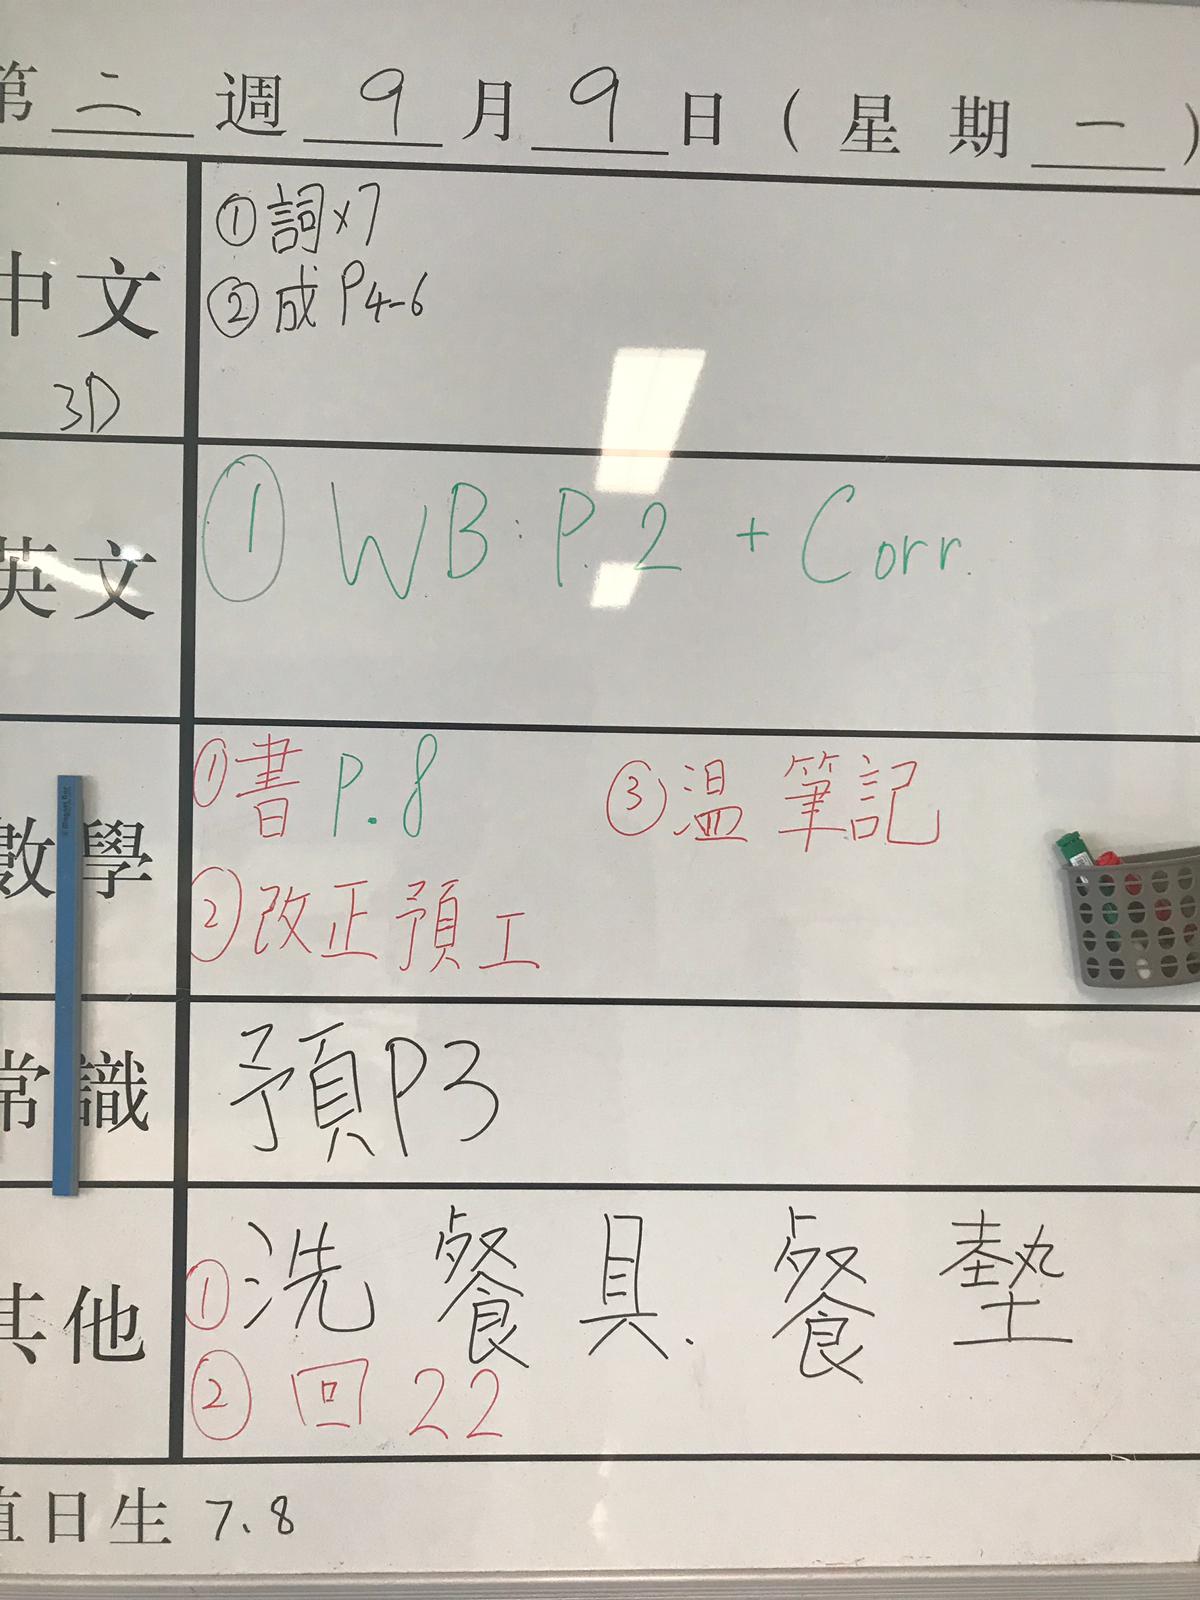 第二週 9月9日(星期一)
中文
3D
①詞x7
②成P4-6
英文
① WB: P.2 + Corr.
數學
①書 P.8 ③溫筆記
②改正預工
常識
預P3
其他
①洗餐具.餐墊
②回22
值日生 7.8